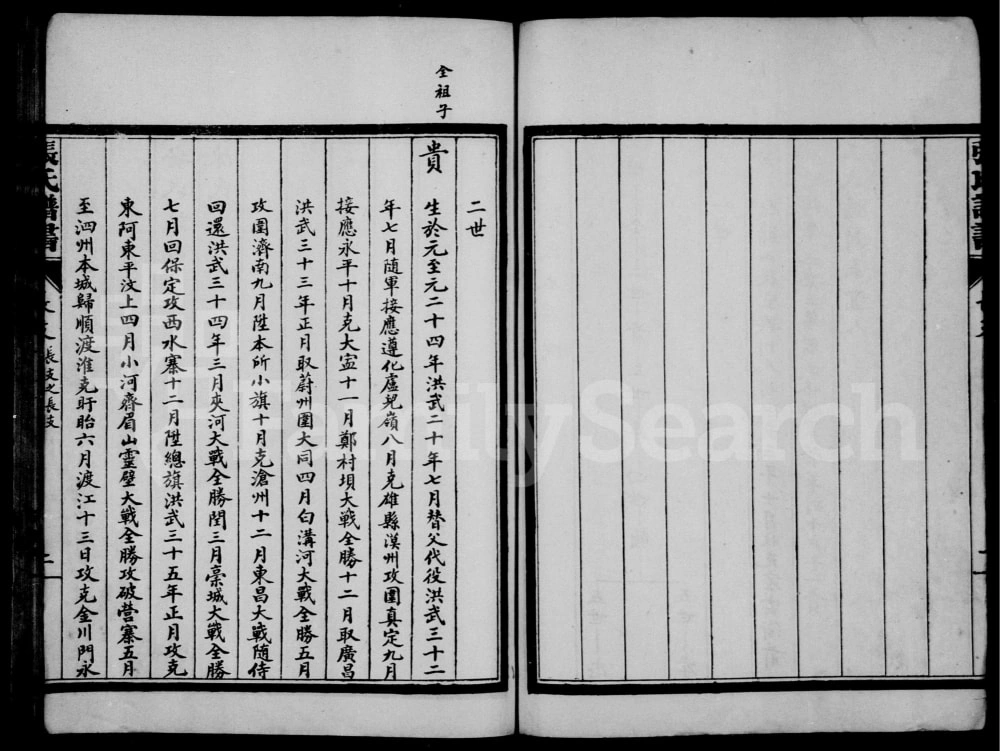 全祖子
二世
貴
生於元至元二十四年洪武二十年七月替父代役洪武三十二
年七月隨軍接應遵化盧兒嶺八月克雄縣漠州攻圍真定九月
接應永平十月克大寍十一月鄭村壩大戰全勝十二月取廣昌
洪武三十三年正月取蔚州圍大同四月白溝河大戰全勝五月
攻圍濟南九月陞本所小旗十月克滄州十二月東昌大戰隨侍
回還洪武三十四年三月夾河大戰全勝閏三月槀城大戰全勝
七月回保定攻西水寨十二月陞總旗洪武三十五年正月攻克
東阿東平汶上四月小河齊眉山靈壁大戰全勝攻破營寨五月
至泗州本城歸順渡淮克盱眙六月渡江十三日攻克金川門永
張氏譜書
長支之長支
二
FamilySearch